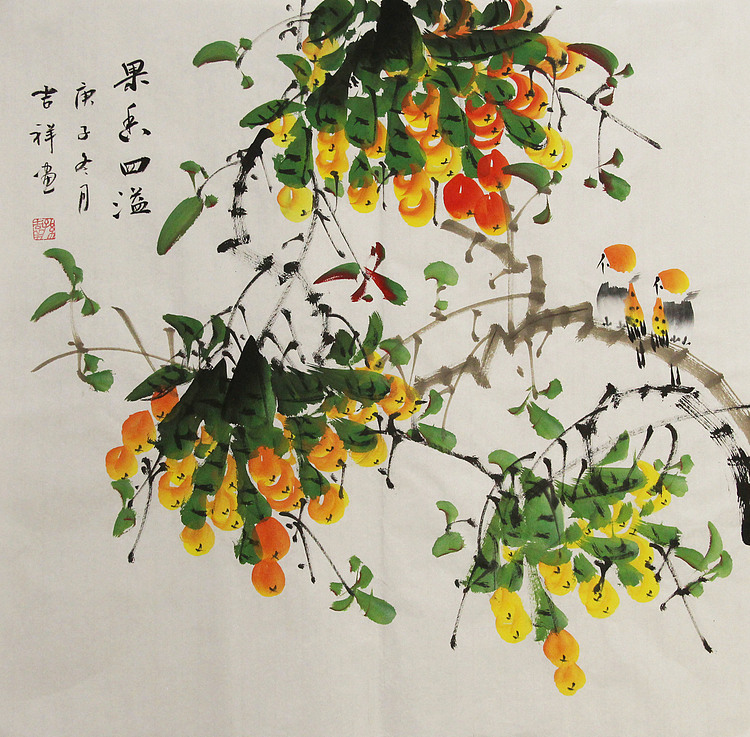 果香四溢
庚子冬月
吉祥画